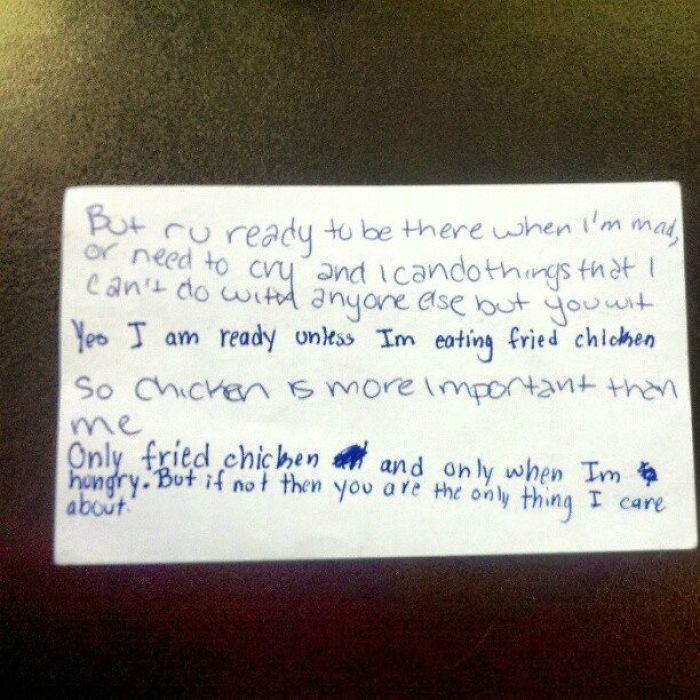 But r u ready to be there when I'm mad,
or need to cry and I can do things that I
can't do with anyone else but you wit
Yes I am ready unless Im eating fried chicken
So Chicken is more important than
me
Only fried chicken and only when Im
hungry. But if not then you are the only thing I care
about.